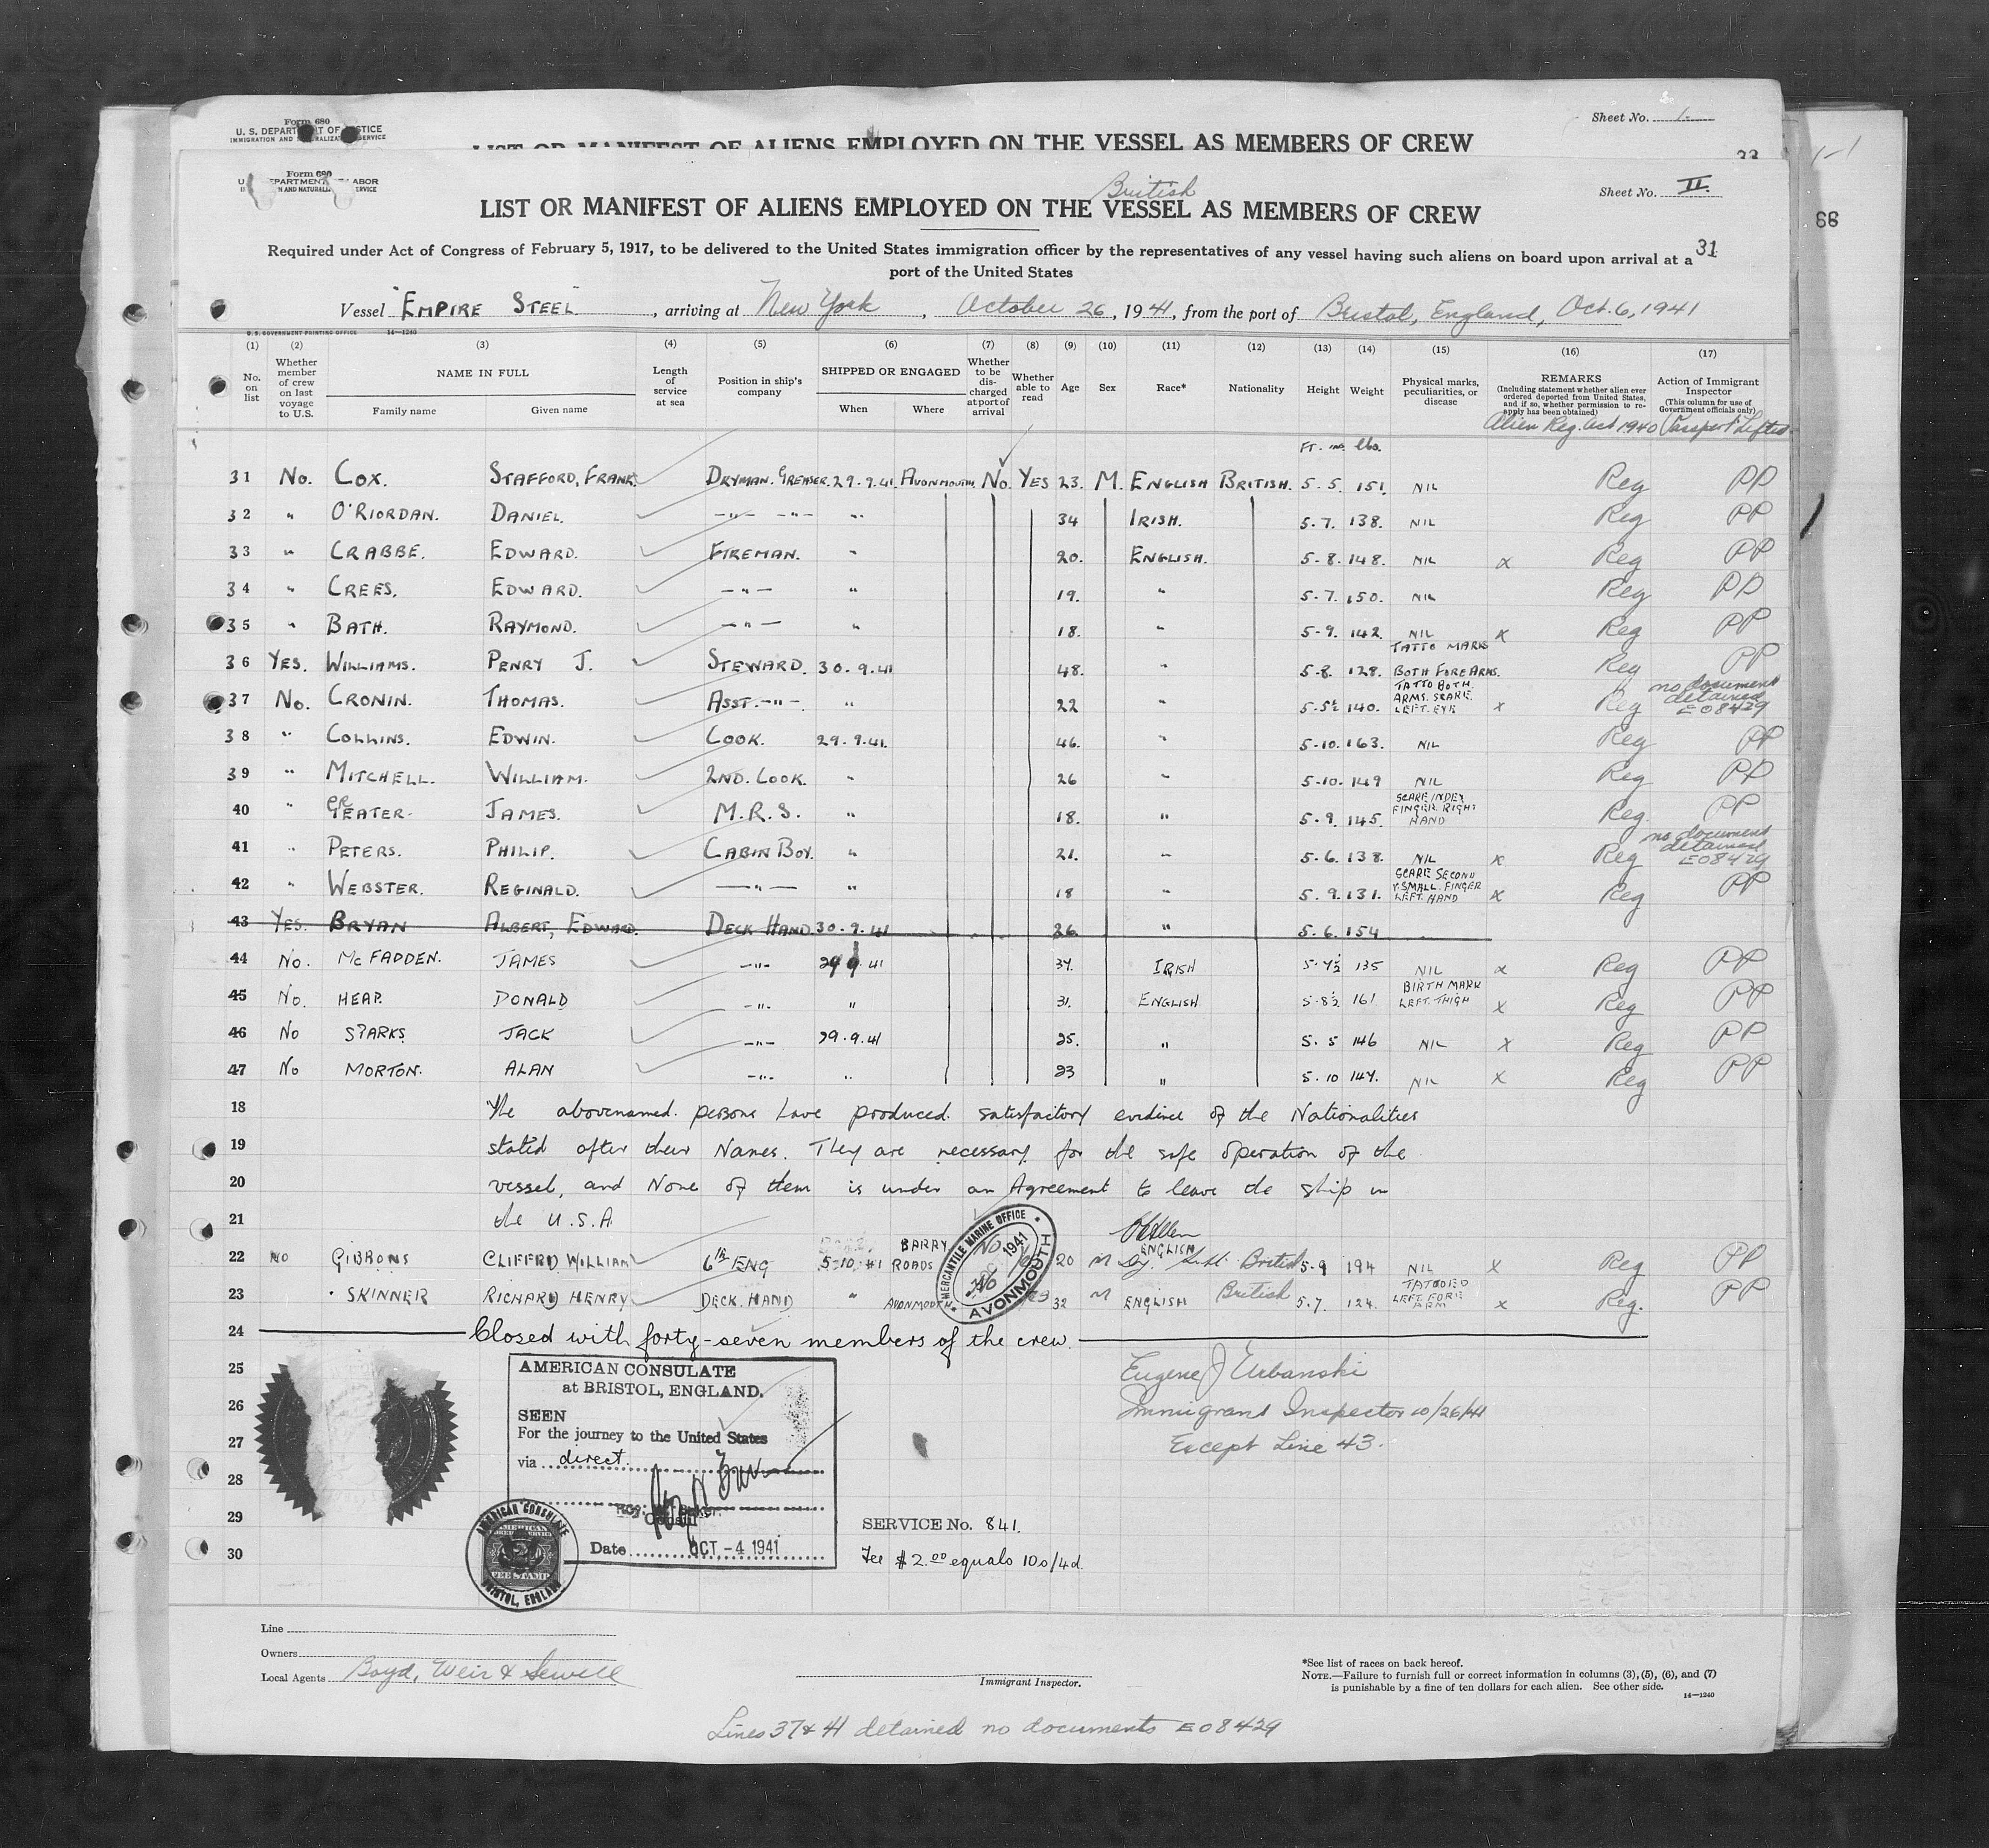 Form 680
U. S. DEPARTMENT OF JUSTICE
IMMIGRATION AND NATURALIZATION SERVICE
Sheet No. 1
LIST OR MANIFEST OF ALIENS EMPLOYED ON THE VESSEL AS MEMBERS OF CREW
33
1-1
Form 680
DEPARTMENT LABOR
Sheet No. II.
British
LIST OR MANIFEST OF ALIENS EMPLOYED ON THE VESSEL AS MEMBERS OF CREW
Required under Act of Congress of February 5, 1917, to be delivered to the United States immigration officer by the representatives of any vessel having such aliens on board upon arrival at a
port of the United States
31
Vessel "EMPIRE STEEL", arriving at New York, October 26, 1941, from the port of Bristol, England, Oct. 6, 1941
U. S. GOVERNMENT PRINTING OFFICE 14—1240
(1) (2) (3) (4) (5) (6) (7) (8) (9) (10) (11) (12) (13) (14) (15) (16) (17)
No. on list
Whether member of crew on last voyage to U.S.
NAME IN FULL
Family name Given name
Length of service at sea
Position in ship's company
SHIPPED OR ENGAGED
When Where
Whether to be discharged at port of arrival
Whether able to read
Age Sex Race* Nationality Height Weight
Physical marks, peculiarities, or disease
REMARKS
(Including statement whether alien ever ordered deported from United States, and if so, whether permission to reapply has been obtained)
Action of Immigrant Inspector
(This column for use of Government officials only)
Alien Reg. Act 1940 Passport Lifted
FT. ins. lbs.
31 No. COX. STAFFORD, FRANK. DRYMAN. GREASER. 29.9.41. AVONMOUTH. No. YES 23. M. ENGLISH BRITISH. 5.5. 151. NIL Reg PP
32 " O'RIORDAN. DANIEL. —"— —"— " 34 IRISH. 5.7. 138. NIL Reg PP
33 " CRABBE. EDWARD. FIREMAN. " 20. ENGLISH. 5.8. 148. NIL x Reg PP
34 " CREES. EDWARD. —"— " 19. " 5.7. 150. NIL Reg PP
35 " BATH. RAYMOND. —"— " 18. " 5.9. 142. NIL x Reg PP
36 YES. WILLIAMS. PENRY J. STEWARD. 30.9.41 48. " 5.8. 128. TATTO MARKS BOTH FOREARMS. Reg PP
37 No. CRONIN. THOMAS. ASST. —"—. " 22 " 5.5½ 140. TATTO BOTH ARMS. SCARE LEFT. EYE x Reg no document detained E08429
38 " COLLINS. EDWIN. COOK. 29.9.41. 46. " 5-10. 163. NIL Reg PP
39 " MITCHELL. WILLIAM. 2ND. COOK. " 26 " 5-10. 149 NIL Reg PP
40 " GREATER. JAMES. M.R.S. " 18. " 5.9. 145. SCARE INDEX FINGER. RIGHT HAND Reg. PP
41 " PETERS. PHILIP. CABIN BOY. " 21. " 5.6. 138. NIL x Reg no document detained E08429
42 " WEBSTER. REGINALD. —"— " 18 " 5.9. 131. SCARE SECOND & SMALL. FINGER LEFT. HAND x Reg PP
43 YES. BRYAN ALBERT, EDWARD. DECK HAND. 30.9.41 26 " 5.6. 154
44 No. McFADDEN. JAMES —"— 29 9 41 34. IRISH 5.4½ 135 NIL x Reg PP
45 No. HEAP. DONALD —"— " 31. ENGLISH 5.8½ 161 BIRTH MARK LEFT. THIGH x Reg PP
46 No SPARKS JACK —"— 29.9.41 25. " 5.5 146 NIL x Reg PP
47 No MORTON. ALAN —"— " 23 " 5.10 147. NIL x Reg PP
18 The abovenamed persons have produced satisfactory evidence of the Nationalities
19 stated after their Names. They are necessary for the safe operation of the
20 vessel, and None of them is under an Agreement to leave the ship in
21 the U.S.A.
MERCANTILE MARINE OFFICE 1941 AVONMOUTH
22 NO GIBBONS CLIFFRD WILLIAM 6th ENG 5.10.41 BARRY ROADS No 20 M ENGLISH British 5-9 194 NIL x Reg PP
23 " SKINNER RICHARD HENRY DECK. HAND " AVONMOUTH No 32 M ENGLISH British 5.7. 124. TATOOED LEFT. FORE ARM x Reg. PP
24 Closed with forty-seven members of the crew.
25
26
27
28
29
30
AMERICAN CONSULATE
at BRISTOL, ENGLAND.
SEEN
For the journey to the United States
via direct.
Consul
Date OCT - 4 1941
AMERICAN CONSULATE
FEE STAMP
BRISTOL, ENGLAND
Eugene J Urbanski
Immigrant Inspector 10/26/41
Except Line 43.
SERVICE No. 841.
Fee $2.00 equals 10s/4d.
Line
Owners
Local Agents Boyd, Weir & Sewell
Immigrant Inspector.
*See list of races on back hereof.
NOTE.—Failure to furnish full or correct information in columns (3), (5), (6), and (7)
is punishable by a fine of ten dollars for each alien. See other side.
14—1240
Lines 37 & 41 detained no documents E08429